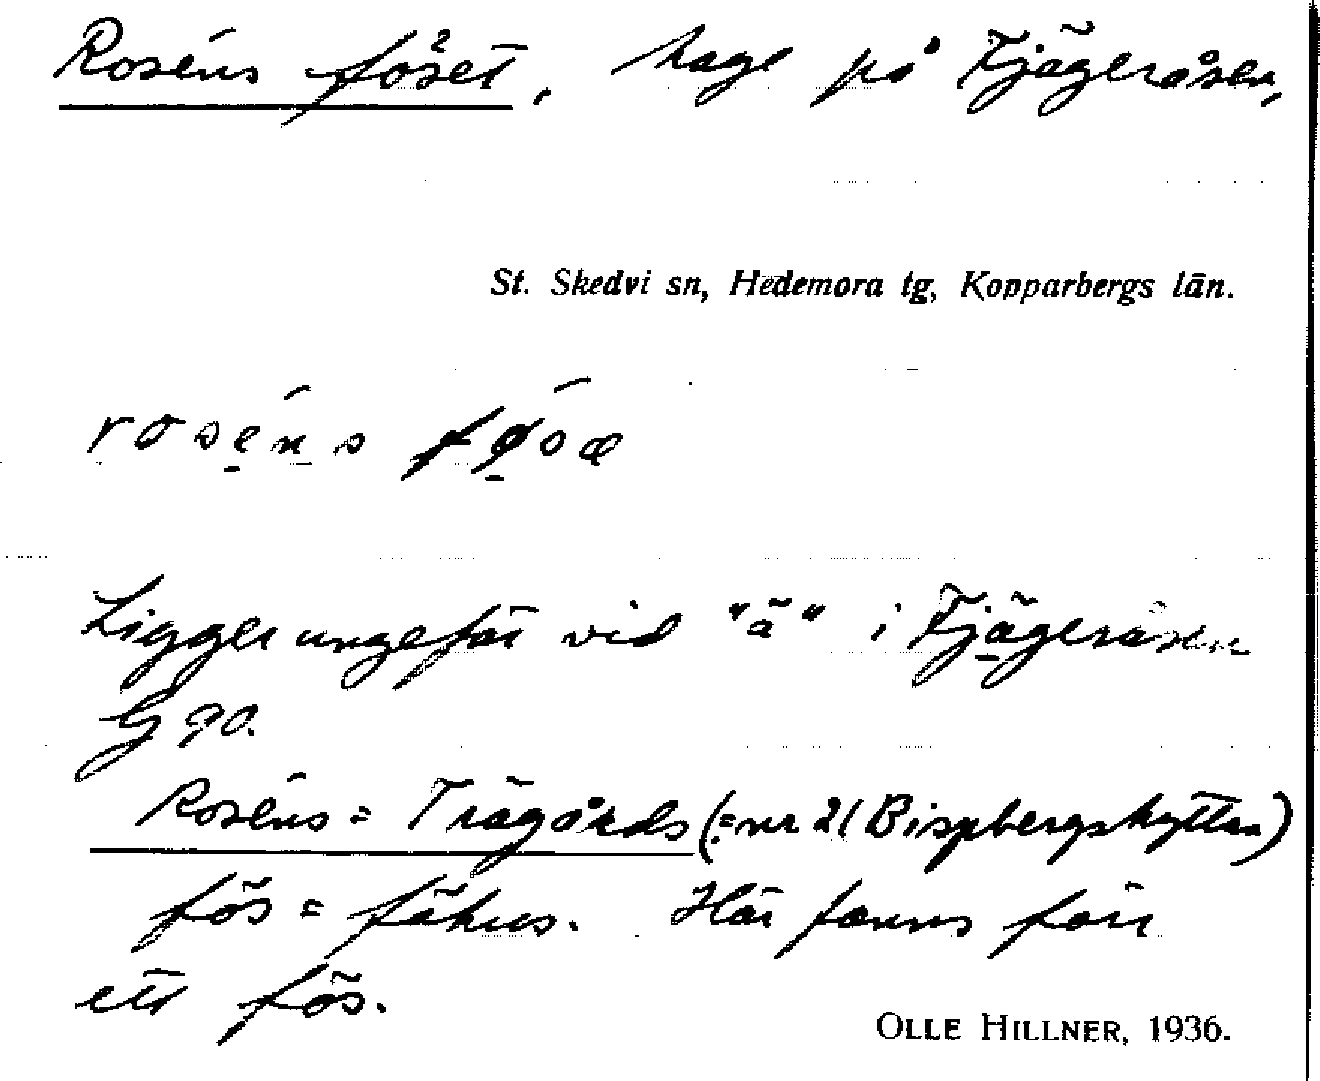 Roséns föset, hage på Fjägeråsen,
St. Skedvi sn, Hedemora tg, Kopparbergs län.
roséns fø̀sæ
Ligger ungefär vid "ä" i Fjägeråsen
G 90.
Roséns = Trägårds (= nr 21 Bispbergshyttan)
fös = fähus. Här fanns förr
ett fös.
OLLE HILLNER, 1936.